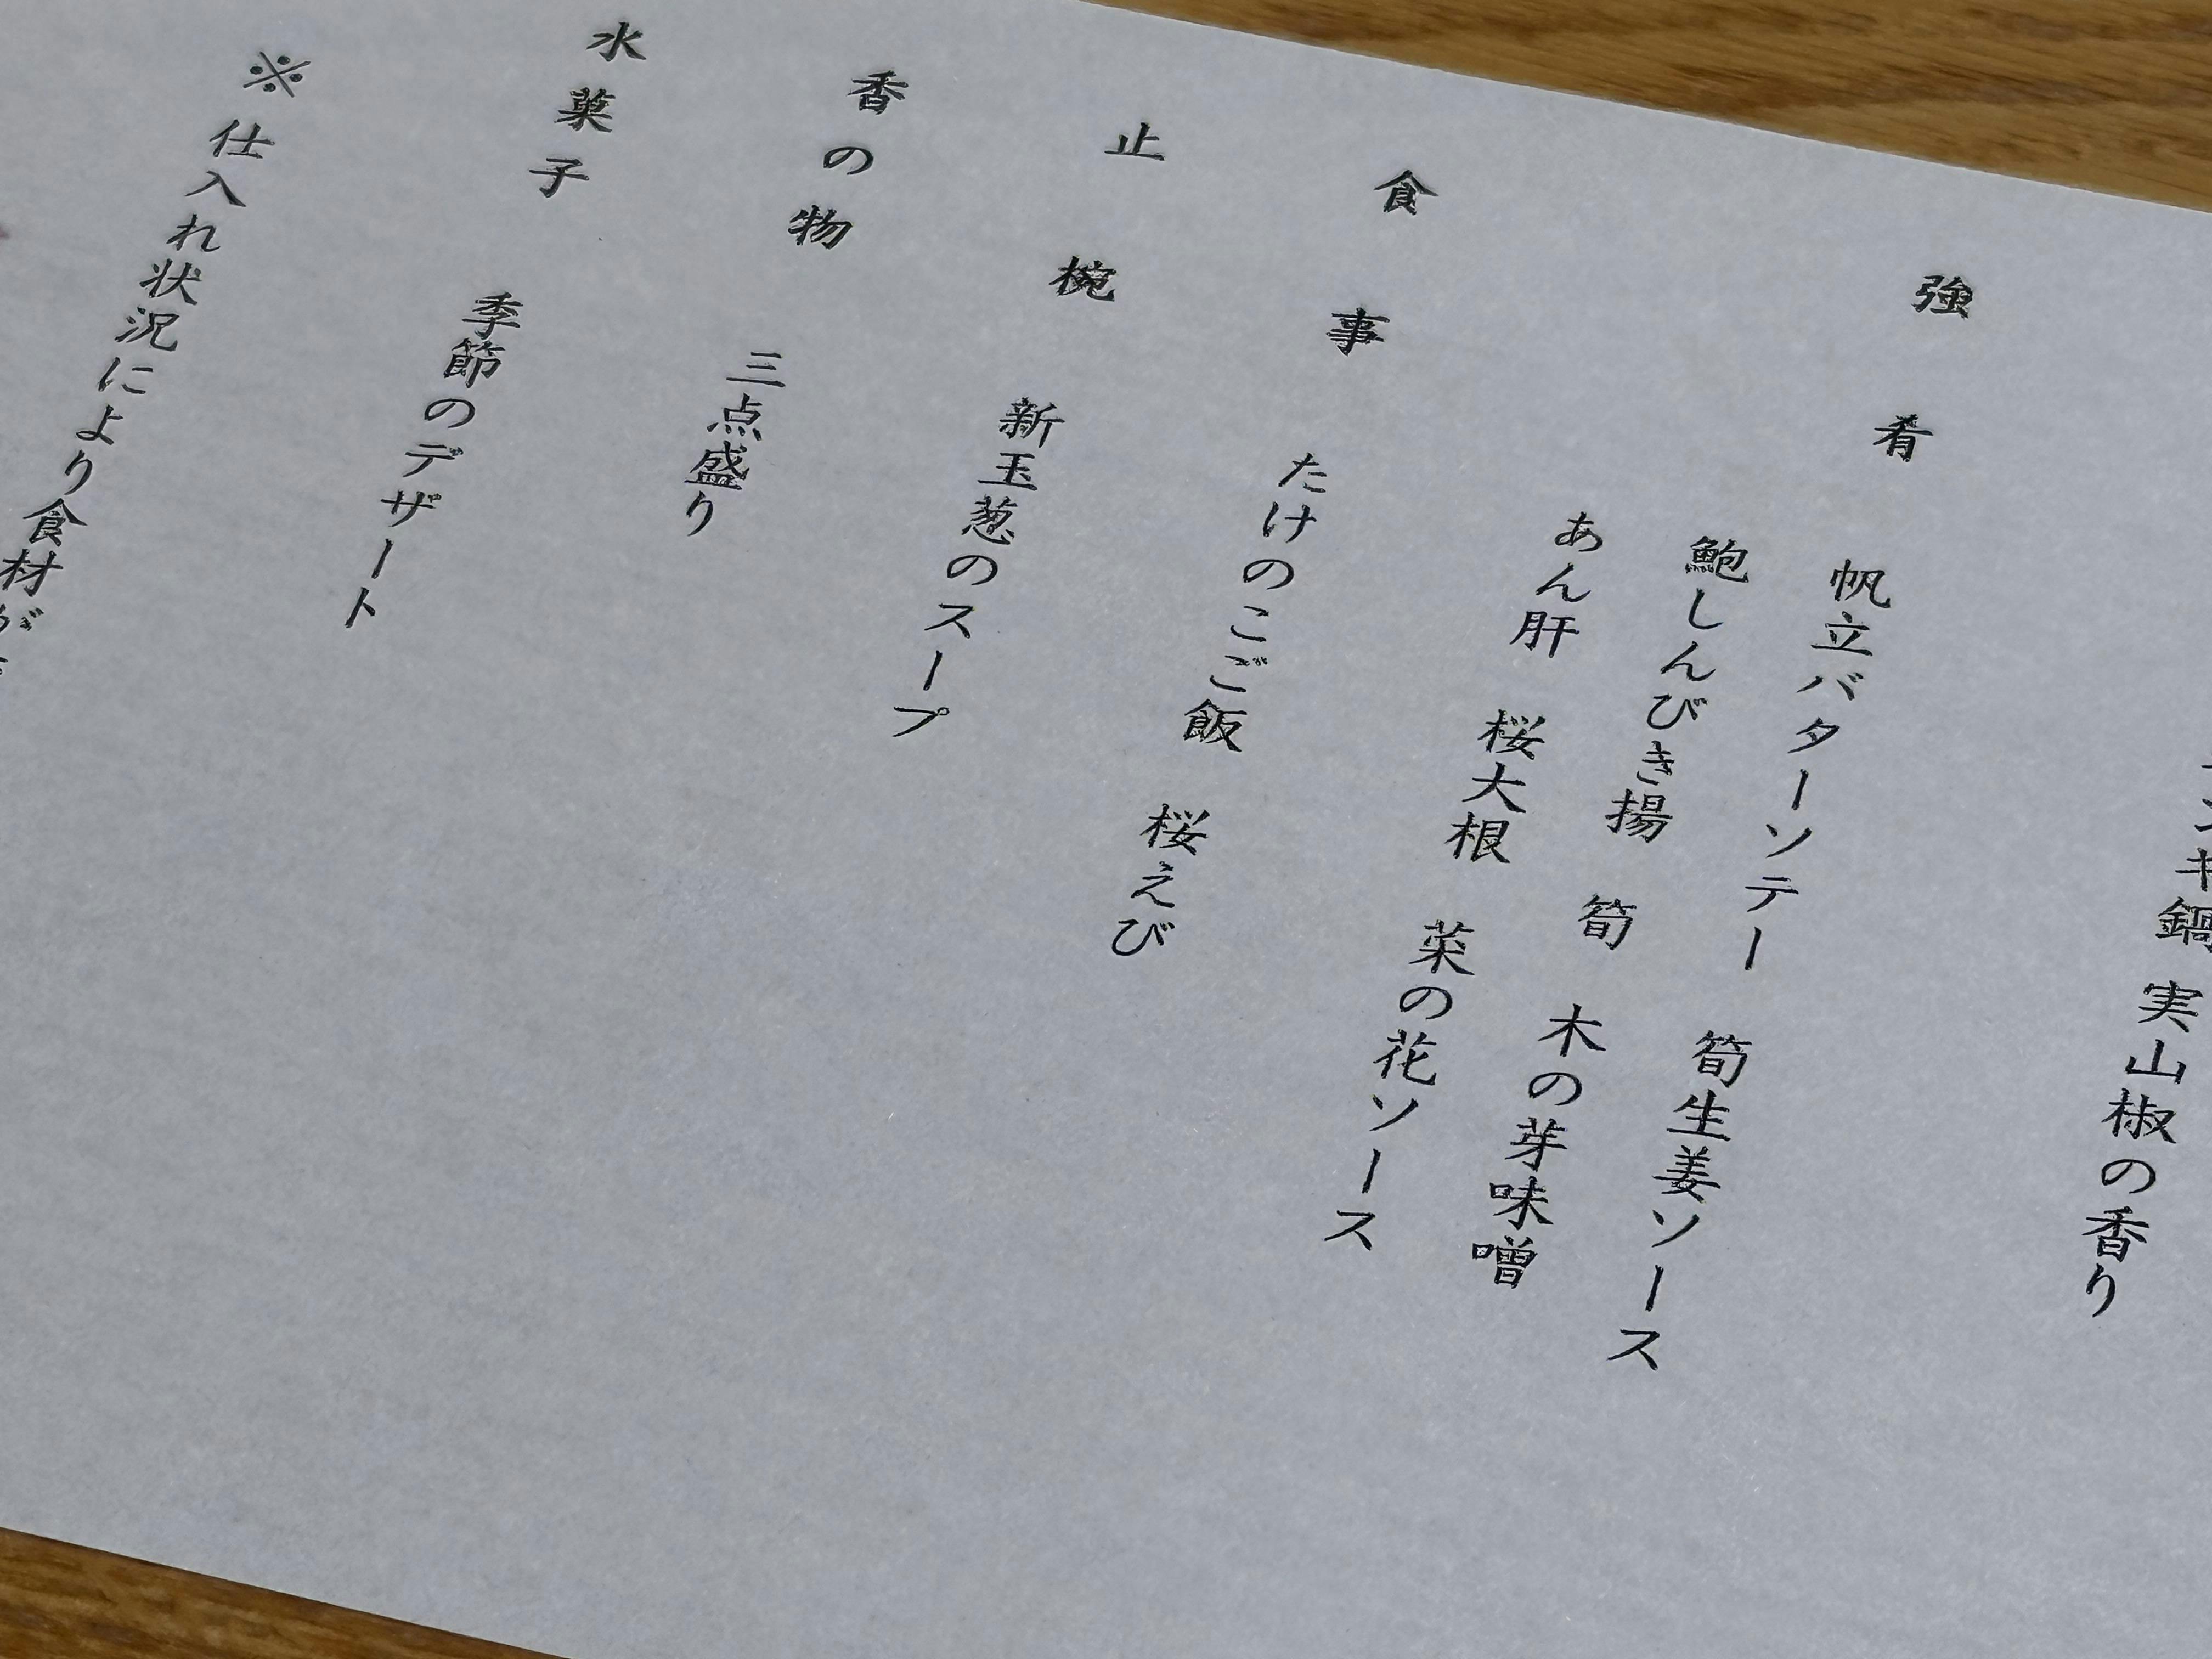 鍋 実山椒の香り
強肴 帆立バターソテー 筍生姜ソース
鮑しんびき揚 筍 木の芽味噌
あん肝 桜大根 菜の花ソース
食事 たけのこご飯 桜えび
止椀 新玉葱のスープ
香の物 三点盛り
水菓子 季節のデザート
※仕入れ状況により食材が